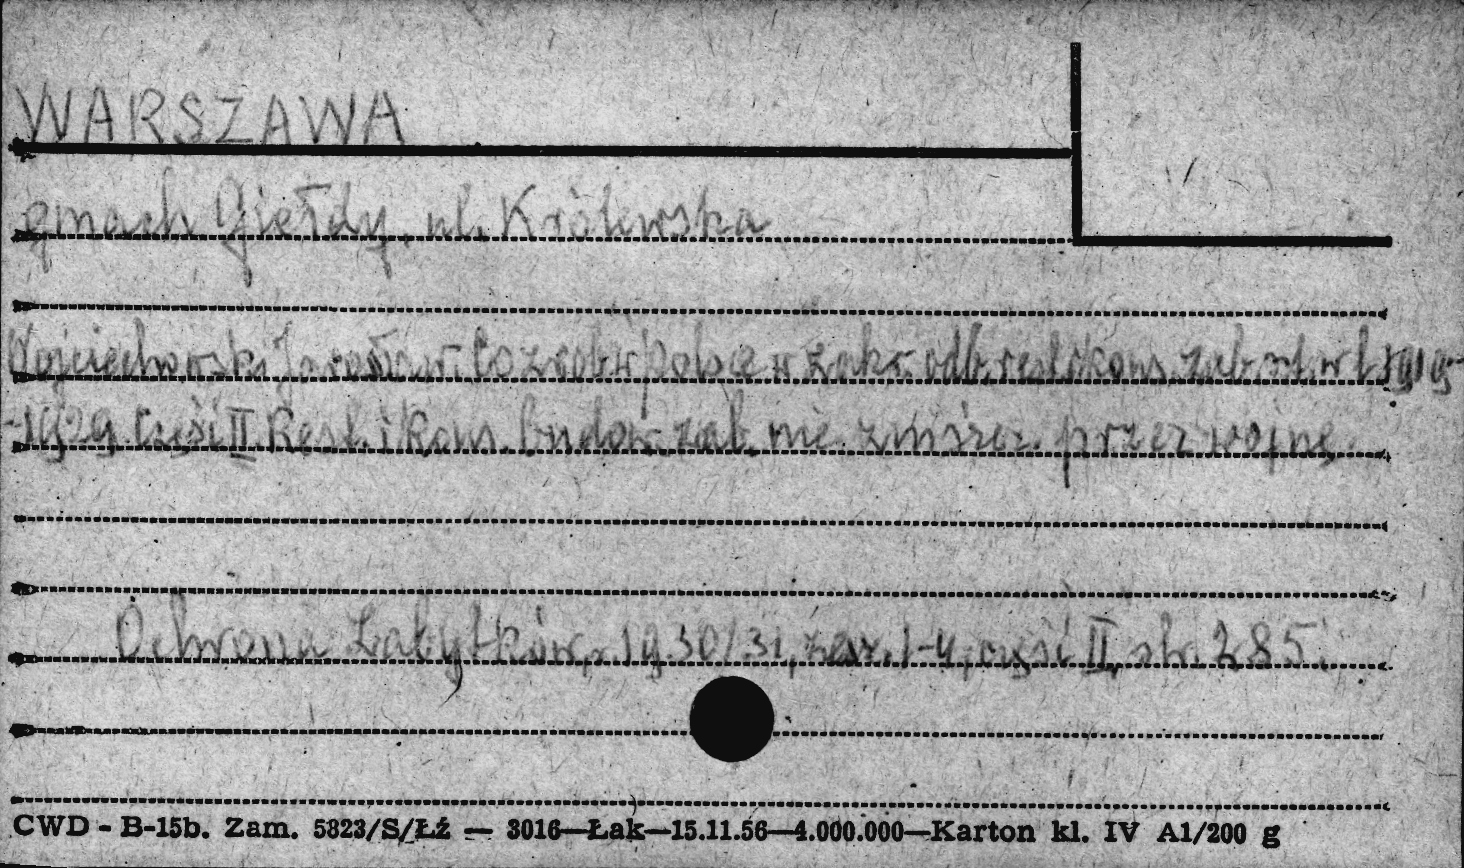 WARSZAWA
gmach Giełdy, ul. Królewska
Wojciechowski Jarosław. Co zrob. w Polsce w zakr. odb. rest. i kons. zab. szt. w l. 1919-
-1929. Część II. Rest. i kons. budow. zab. nie zniszcz. przez wojnę
Ochrona Zabytków, 1930/31, zesz. 1-4, część II, str. 285.
CWD - B-15b. Zam. 5823/S/Łź — 3016—Łak—15.11.56—4.000.000—Karton kl. IV A1/200 g